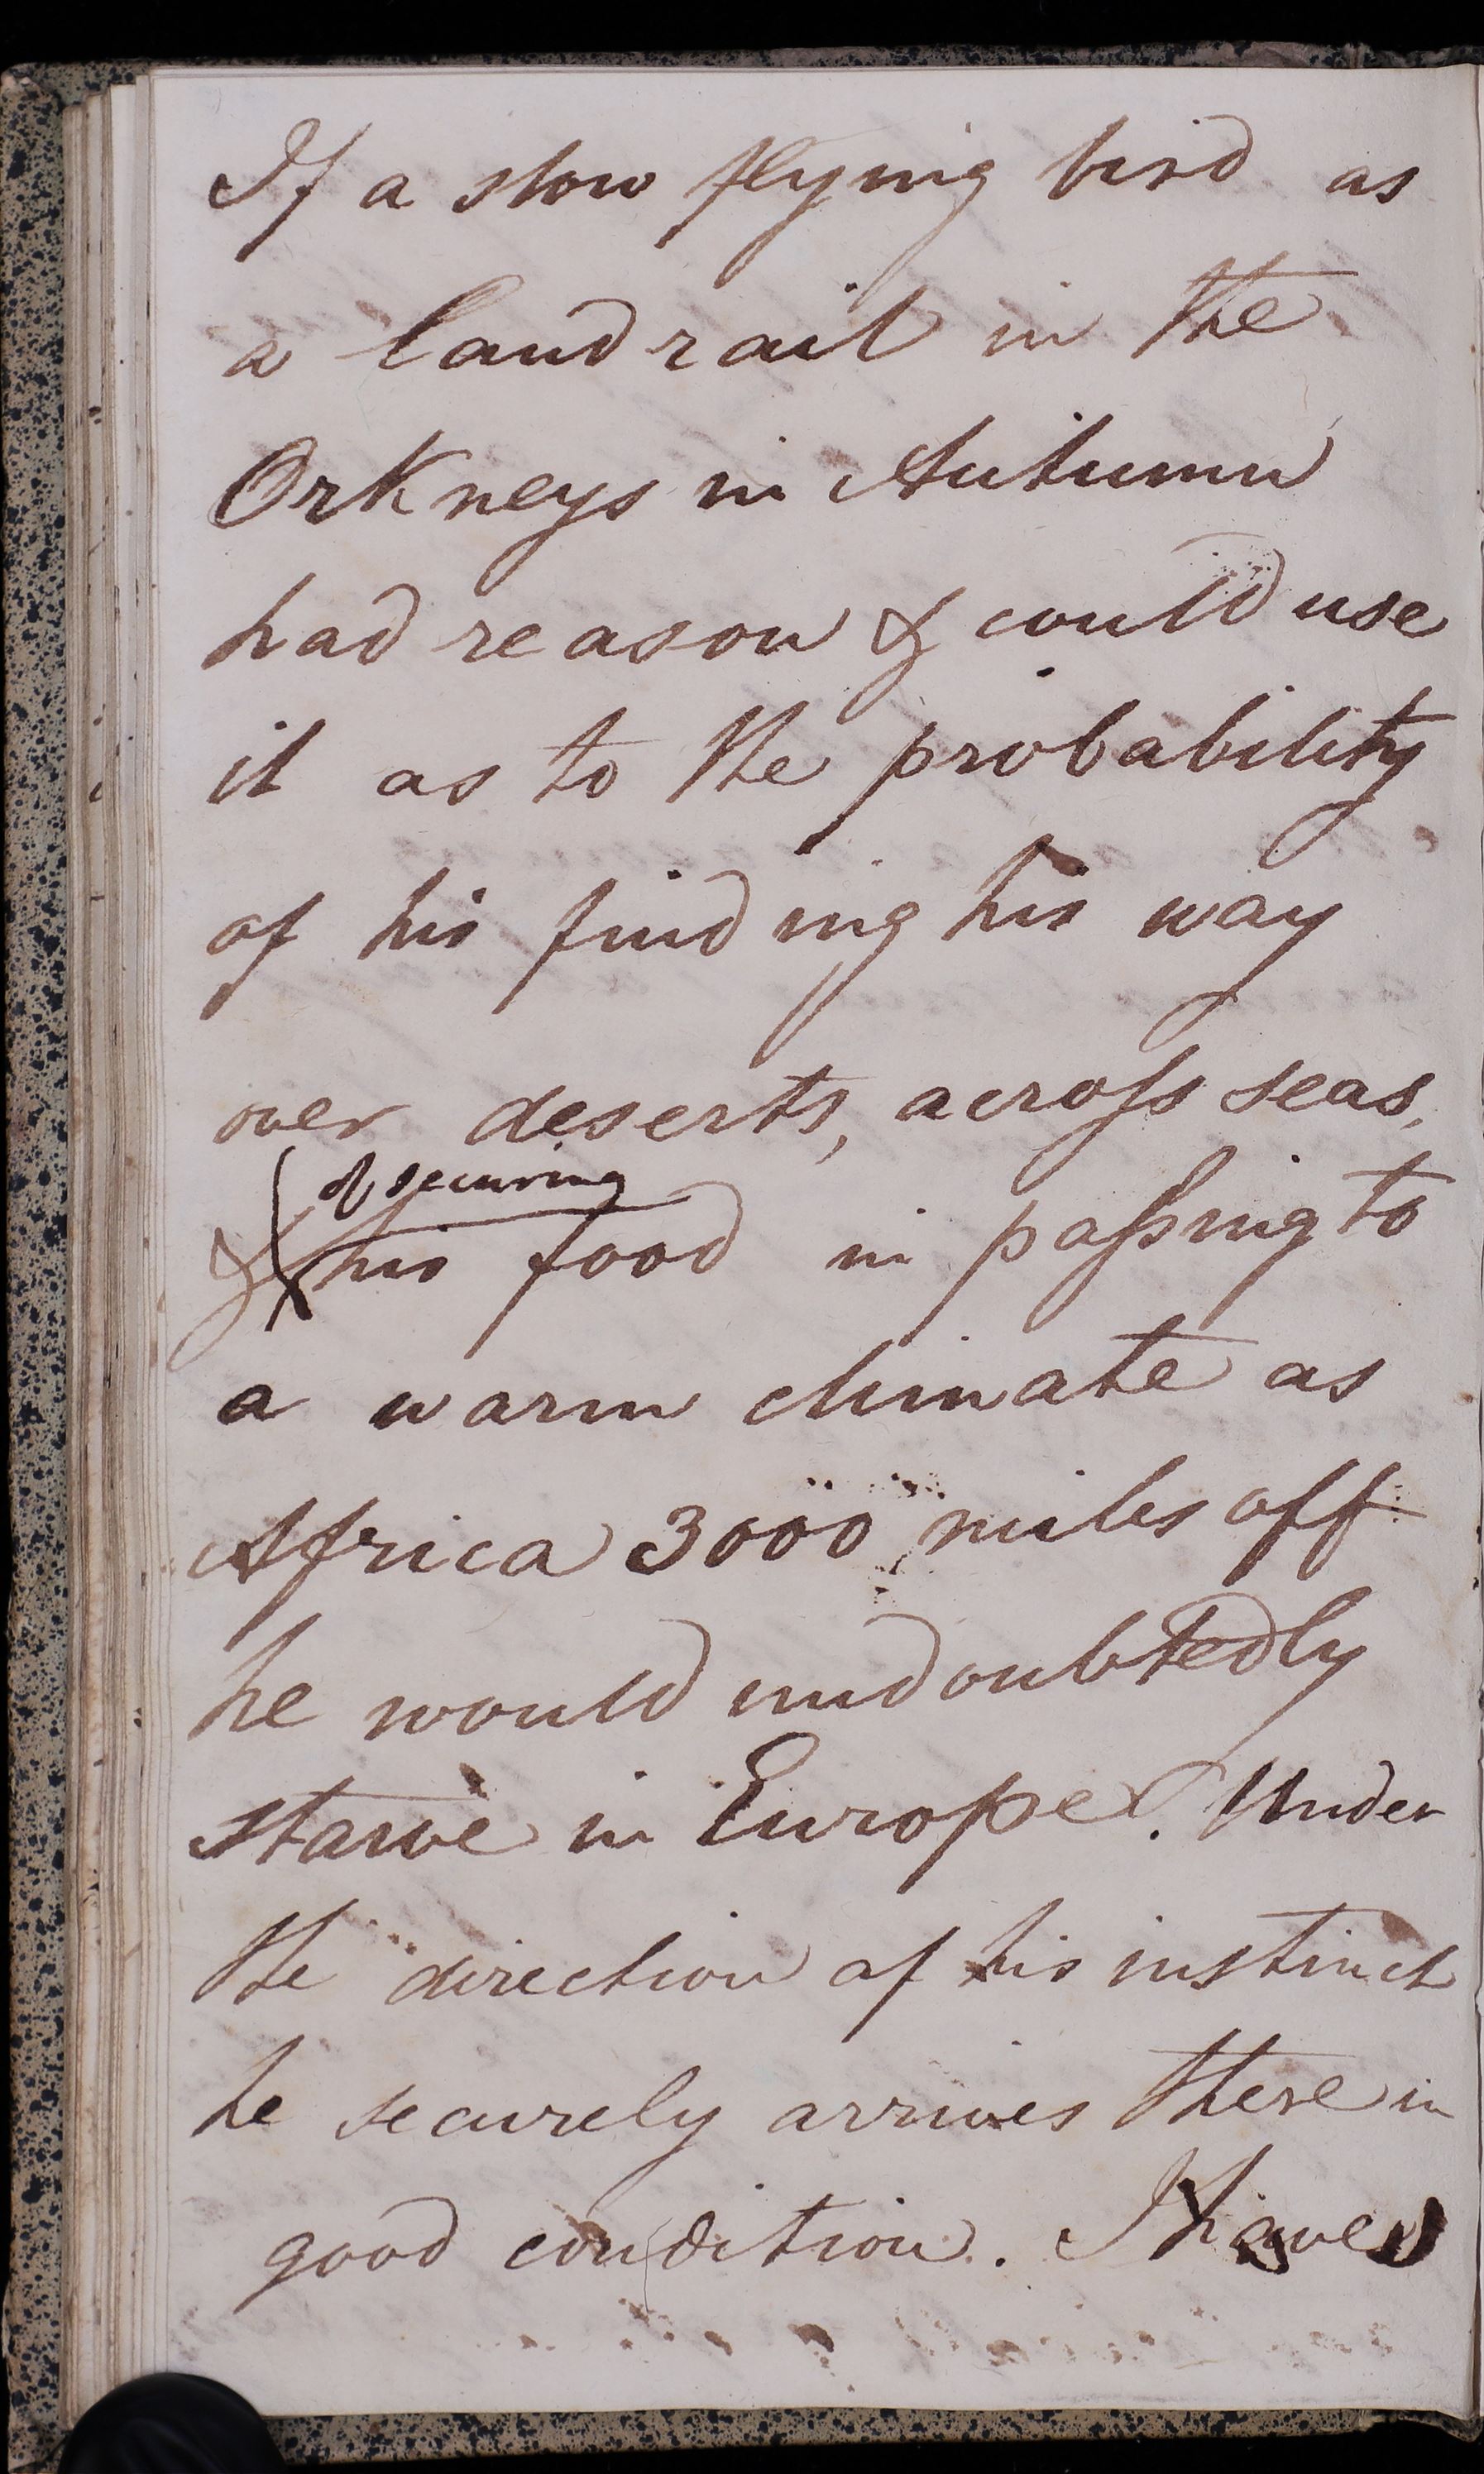 If a slow flying bird as
a land rail in the
Orkneys in Autumn
had reason & could use
it as to the probability
of his finding his way
over deserts, across seas,
of securing
& his food in passing to
a warm climate as
Africa 3000 miles off
he would undoubtedly
starve in Europe. Under
the direction of his instinct
he securely arrives there in
good condition. I have